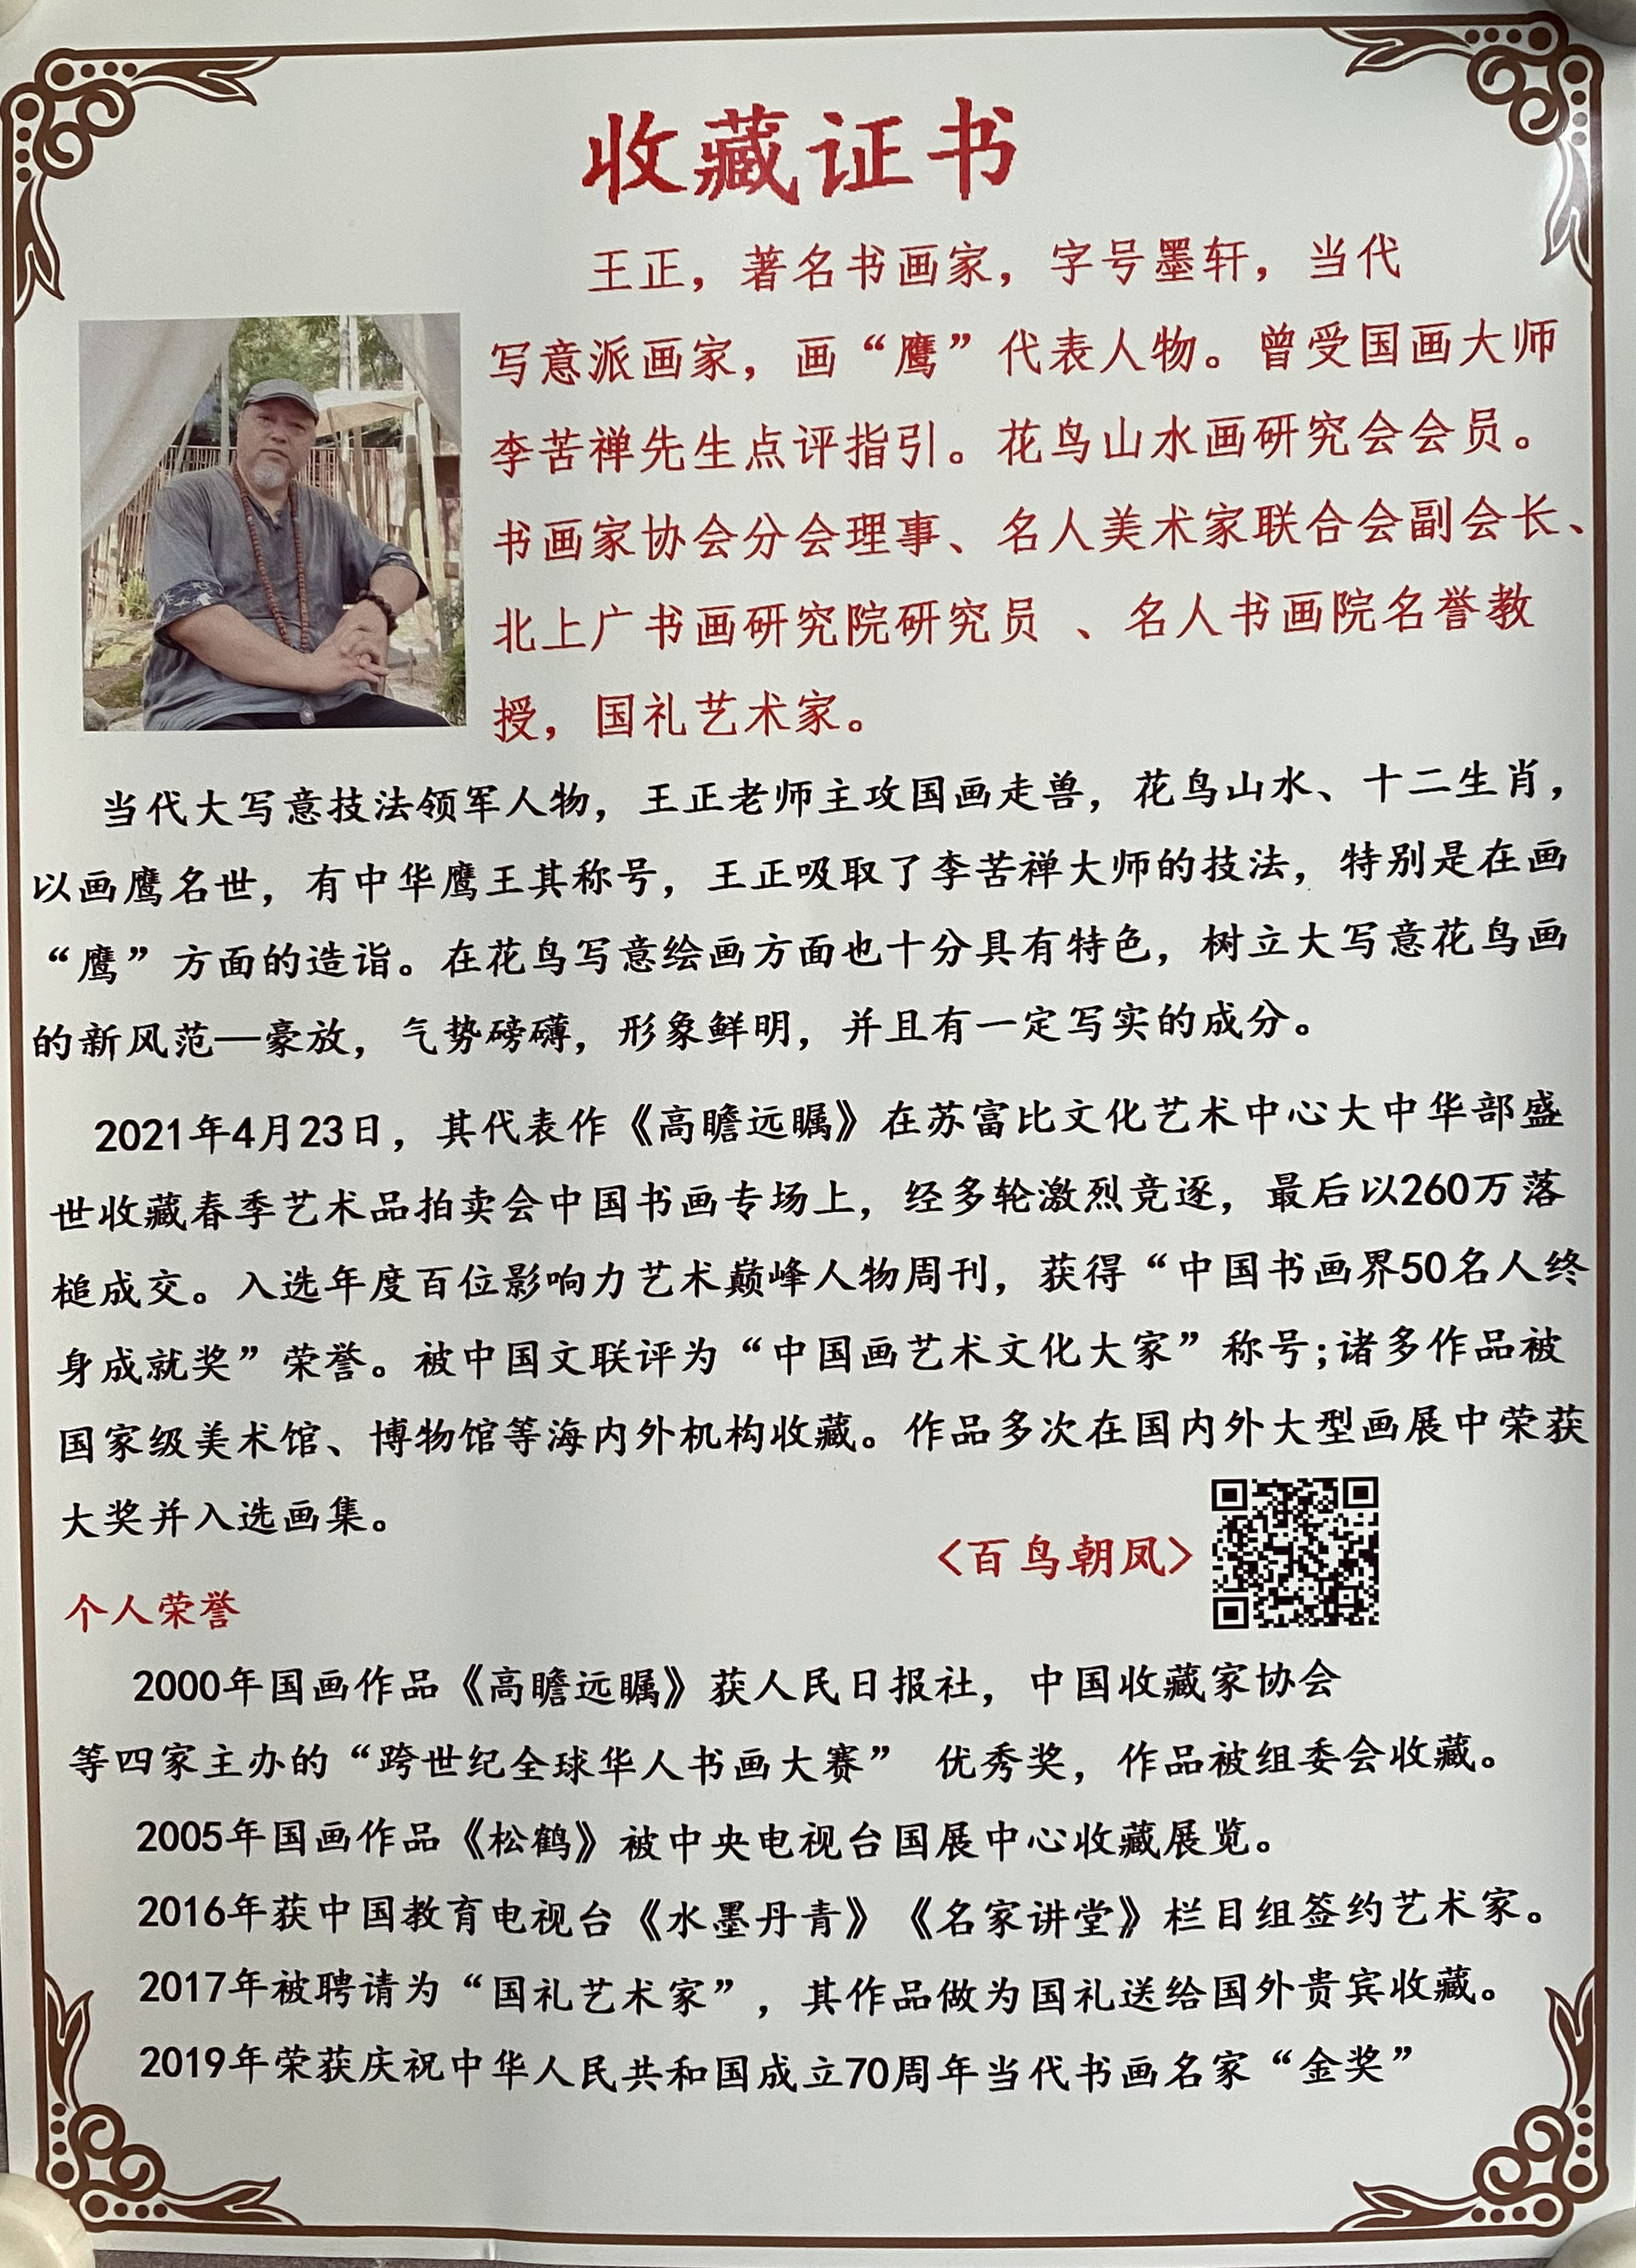 收藏证书
王正，著名书画家，字号墨轩，当代
写意派画家，画“鹰”代表人物。曾受国画大师
李苦禅先生点评指引。花鸟山水画研究会会员。
书画家协会分会理事、名人美术家联合会副会长、
北上广书画研究院研究员 、名人书画院名誉教
授，国礼艺术家。
当代大写意技法领军人物，王正老师主攻国画走兽，花鸟山水、十二生肖，
以画鹰名世，有中华鹰王其称号，王正吸取了李苦禅大师的技法，特别是在画
“鹰”方面的造诣。在花鸟写意绘画方面也十分具有特色，树立大写意花鸟画
的新风范—豪放，气势磅礴，形象鲜明，并且有一定写实的成分。
2021年4月23日，其代表作《高瞻远瞩》在苏富比文化艺术中心大中华部盛
世收藏春季艺术品拍卖会中国书画专场上，经多轮激烈竞逐，最后以260万落
槌成交。入选年度百位影响力艺术巅峰人物周刊，获得“中国书画界50名人终
身成就奖”荣誉。被中国文联评为“中国画艺术文化大家”称号;诸多作品被
国家级美术馆、博物馆等海内外机构收藏。作品多次在国内外大型画展中荣获
大奖并入选画集。
<百鸟朝凤>
个人荣誉
2000年国画作品《高瞻远瞩》获人民日报社，中国收藏家协会
等四家主办的“跨世纪全球华人书画大赛” 优秀奖，作品被组委会收藏。
2005年国画作品《松鹤》被中央电视台国展中心收藏展览。
2016年获中国教育电视台《水墨丹青》《名家讲堂》栏目组签约艺术家。
2017年被聘请为“国礼艺术家”，其作品做为国礼送给国外贵宾收藏。
2019年荣获庆祝中华人民共和国成立70周年当代书画名家“金奖”